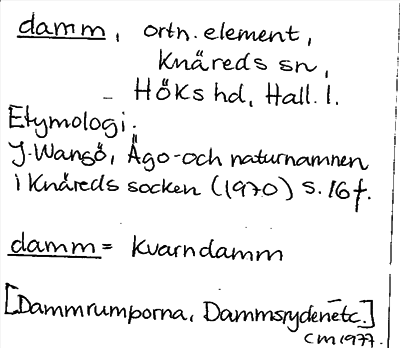 damm, ortn. element,
Knäreds sn,
Höks hd, Hall. l.
Etymologi.
J. Wangö, Ägo- och naturnamnen
i Knäreds socken (1970) s. 16 f.
damm = kvarndamm
[Dammrumporna, Dammsryden etc.]
CM 1977.